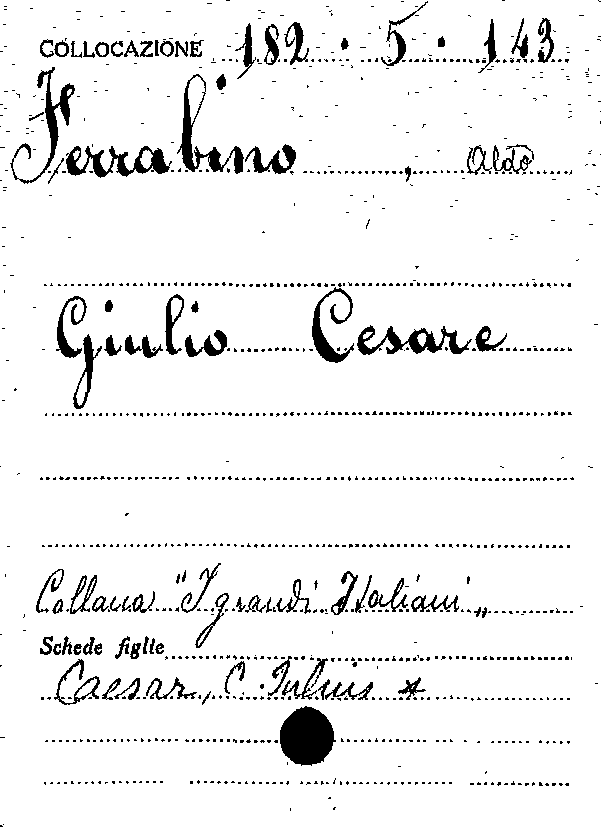 COLLOCAZIONE 182 . 5 . 143
Ferrabino , Aldo
Giulio Cesare
Collana "I grandi Italiani"
Schede figlie
Caesar, C. Iulius *